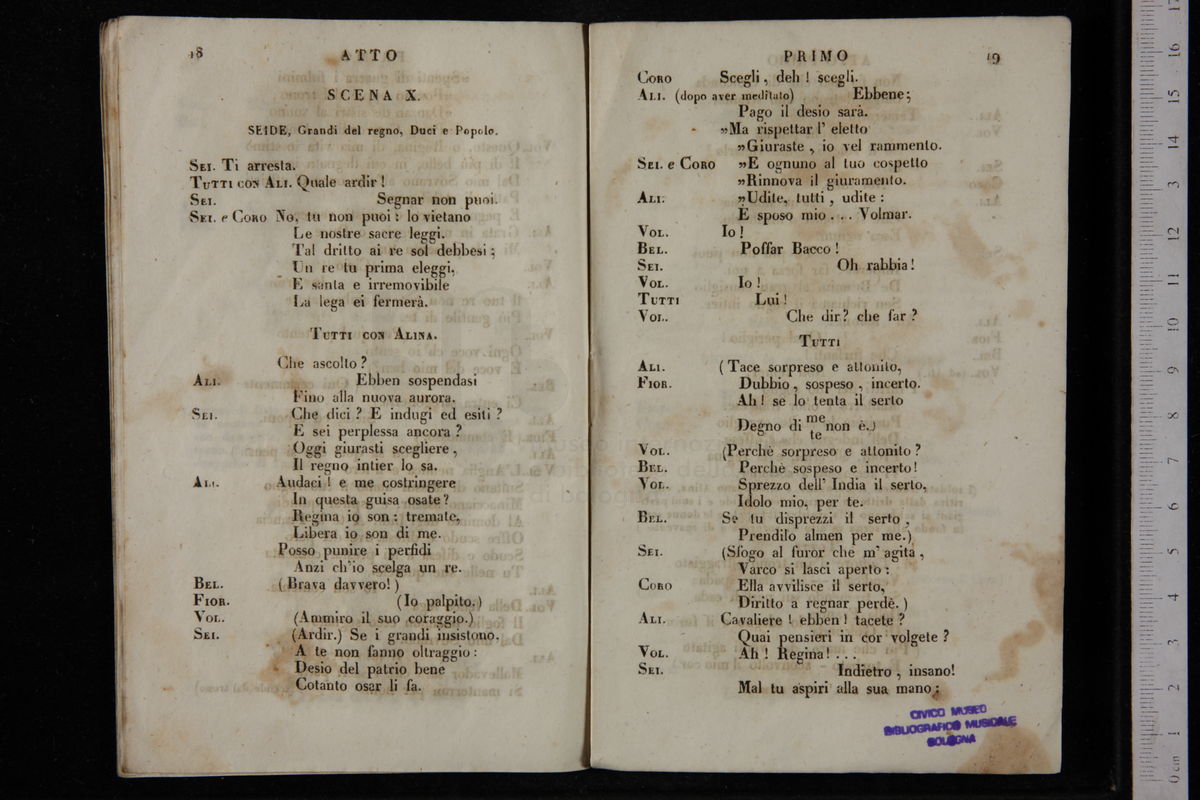 18
ATTO
SCENA X.
SEIDE, Grandi del regno, Duci e Popolo.
SEI. Ti arresta.
TUTTI CON ALI. Quale ardir!
SEI. Segnar non puoi.
SEI. e CORO No, tu non puoi: lo vietano
Le nostre sacre leggi.
Tal dritto ai re sol debbesi;
Un re tu prima eleggi,
E santa e irremovibile
La lega ei fermerà.
TUTTI CON ALINA.
Che ascolto?
ALI. Ebben sospendasi
Fino alla nuova aurora.
SEI. Che dici? E indugi ed esiti?
E sei perplessa ancora?
Oggi giurasti scegliere,
Il regno intier lo sa.
ALI. Audaci! e me costringere
In questa guisa osate?
Regina io son: tremate,
Libera io son di me.
Posso punire i perfidi
Anzi ch'io scelga un re.
BEL. (Brava davvero!)
FIOR. (Io palpito.)
VOL. (Ammiro il suo coraggio.)
SEI. (Ardir.) Se i grandi insistono.
A te non fanno oltraggio:
Desio del patrio bene
Cotanto osar li fa.
PRIMO
19
CORO Scegli, deh! scegli.
ALI. (dopo aver meditato) Ebbene;
Pago il desio sarà.
»Ma rispettar l' eletto
»Giuraste, io vel rammento.
SEI. e CORO »E ognuno al tuo cospetto
»Rinnova il giuramento.
ALI. »Udite, tutti, udite:
È sposo mio... Volmar.
VOL. Io!
BEL. Poffar Bacco!
SEI. Oh rabbia!
VOL. Io!
TUTTI Lui!
VOL. Che dir? che far?
TUTTI
ALI. (Tace sorpreso e attonito,
FIOR. Dubbio, sospeso, incerto.
Ah! se lo tenta il serto
Degno di me non è.)
te
VOL. (Perchè sorpreso e attonito?
BEL. Perchè sospeso e incerto!
VOL. Sprezzo dell' India il serto,
Idolo mio, per te.
BEL. Se tu disprezzi il serto,
Prendilo almen per me.)
SEI. (Sfogo al furor che m' agita,
Varco si lasci aperto:
CORO Ella avvilisce il serto,
Diritto a regnar perdè.)
ALI. Cavaliere! ebben! tacete?
Quai pensieri in cor volgete?
VOL. Ah! Regina!...
SEI. Indietro, insano!
Mal tu aspiri alla sua mano;
CIVICO MUSEO
BIBLIOGRAFICO MUSICALE
BOLOGNA